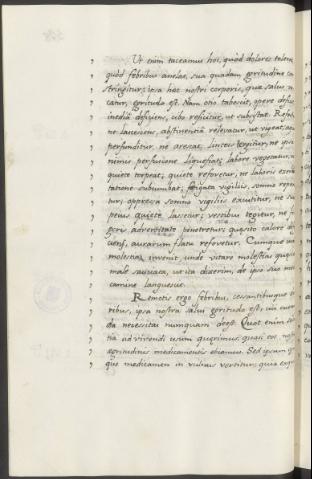 Ut enim taceamus hoc, quòd dolores tolerat
quòd febribus anelat, sua quadam ęgritudine con
stringitur; ipsa hęc nostri corporis, quæ salus uo
catur, ęgritudo est. Nam otio tabescit, opere deficit
inedia deficiens, cibo reficitur, ut subsistat. Refe
ne lassescens, abstinentia releuatur, ut uigeat; aqua
perfunditur, ne arescat, linteis tergitur, ne ipsa
nimis perfusione liquefiat; labore uegetatur, ne
quiete torpeat; quiete refouetur, ne laboris exerci
tatione succumbat; fatigata uigiliis, somno repara
tur; oppressa somno uigiliis excutitur, ne sua
peius quiete lassetur; uestibus tegitur, ne fri
goris aduersitate penetretur; quęsito calore defi
ciens, aurarum flatu refouetur. Cumque
molestias inuenit, unde uitare molestias quęsi
malè sauciata, ut ita dixerim, de ipso suo medi
camine languescit.
Remotis ergo febribus, cessantibusque dolo
ribus, ipsa nostra salus ęgritudo est, cui curan
da necessitas numquam deest. Quot enim sola
tia ad uiuendi usum quęrimus, quasi tot nostrę
ęgritudini medicamentis obuiamus. Sed ipsum quo
que medicamen in uulnus uertitur; quia exqui